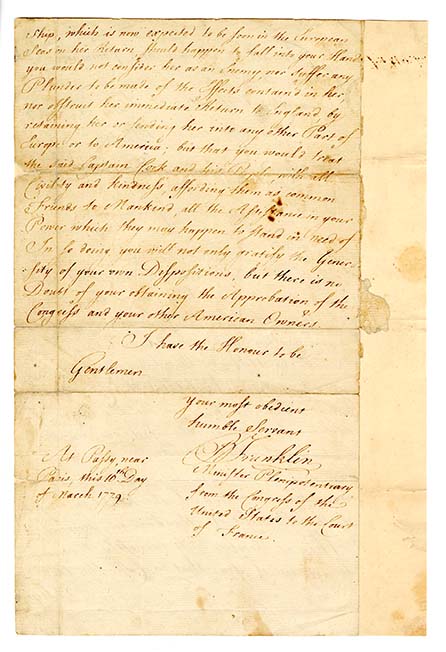 Ship, which is now expected to be soon in the European
Seas on her Return, should happen to fall into your Hands
you would not consider her as an Enemy, nor suffer any
Plunder to be made of the Effects contain'd in her
nor obstruct her immediate Return to England, by
detaining her or sending her into any other Part of
Europe or to America; but that you would treat
the said Captain Cook and his People with all
Civility and Kindness affording them as common
Friends to Mankind, all the Assistance in your
Power which they may happen to stand in need of
In so doing you will not only gratify the Gener
=osity of your own Dispositions, but there is no
Doubt of your obtaining the Approbation of the
Congress and your other American Owners
I have the Honour to be
Gentlemen
your most obedient
humble Servant
At Passy, near
Paris, this 10th Day
of March 1779.
B Franklin
Minister Plenipotentiary
from the Congress of the
United States to the Court
of France.